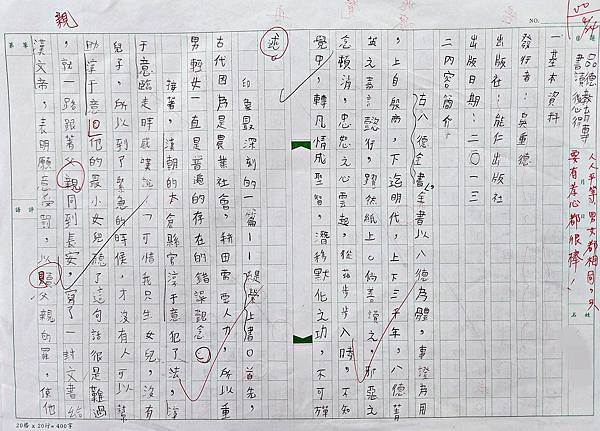 100
8/24
題目
品德教育專書讀後心得
人人平等,男女都相同,只要有孝心都很棒!
NO.
一基本資料
發行者:吳重德
出版社:能仁出版社
出版日期:二〇一三
二內容簡介
古八德全書,全書以八德為體,事證為用
,上自殷商,下迄明代,上下三千年,八德菁
英之嘉言懿行,躍然紙上。倘善讀之,邪惡之
念頓消,忠恕之心雲起,從茲步步入時,不知
覺中,轉凡情成聖智,潛移默化之功,不可殫
述。
印象最深刻的一篇——緹縈上書。首先,
古代因為是農業社會,耕田需要人力,所以重
男輕女一直是普遍的存在的錯誤觀念。
接著,漢朝的太倉縣官淳于意犯了法,淳
于意臨走時感嘆說:「可惜我只生女兒,沒有
兒子,所以到了緊急的時候,才沒有人可以幫
助淳于意。他的最小女兒聽了這句話很是難過
,就一路跟著父親同到長安,寫了一封文書給
漢文帝,表明願意受罰,以贖父親的罪,使他
親
姓名
評語
20格 x 20行=400字